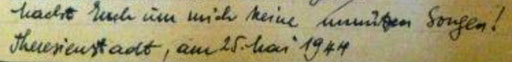 macht Euch um mich keine unnützen Sorgen!
Theresienstadt, am 25. Mai 1944